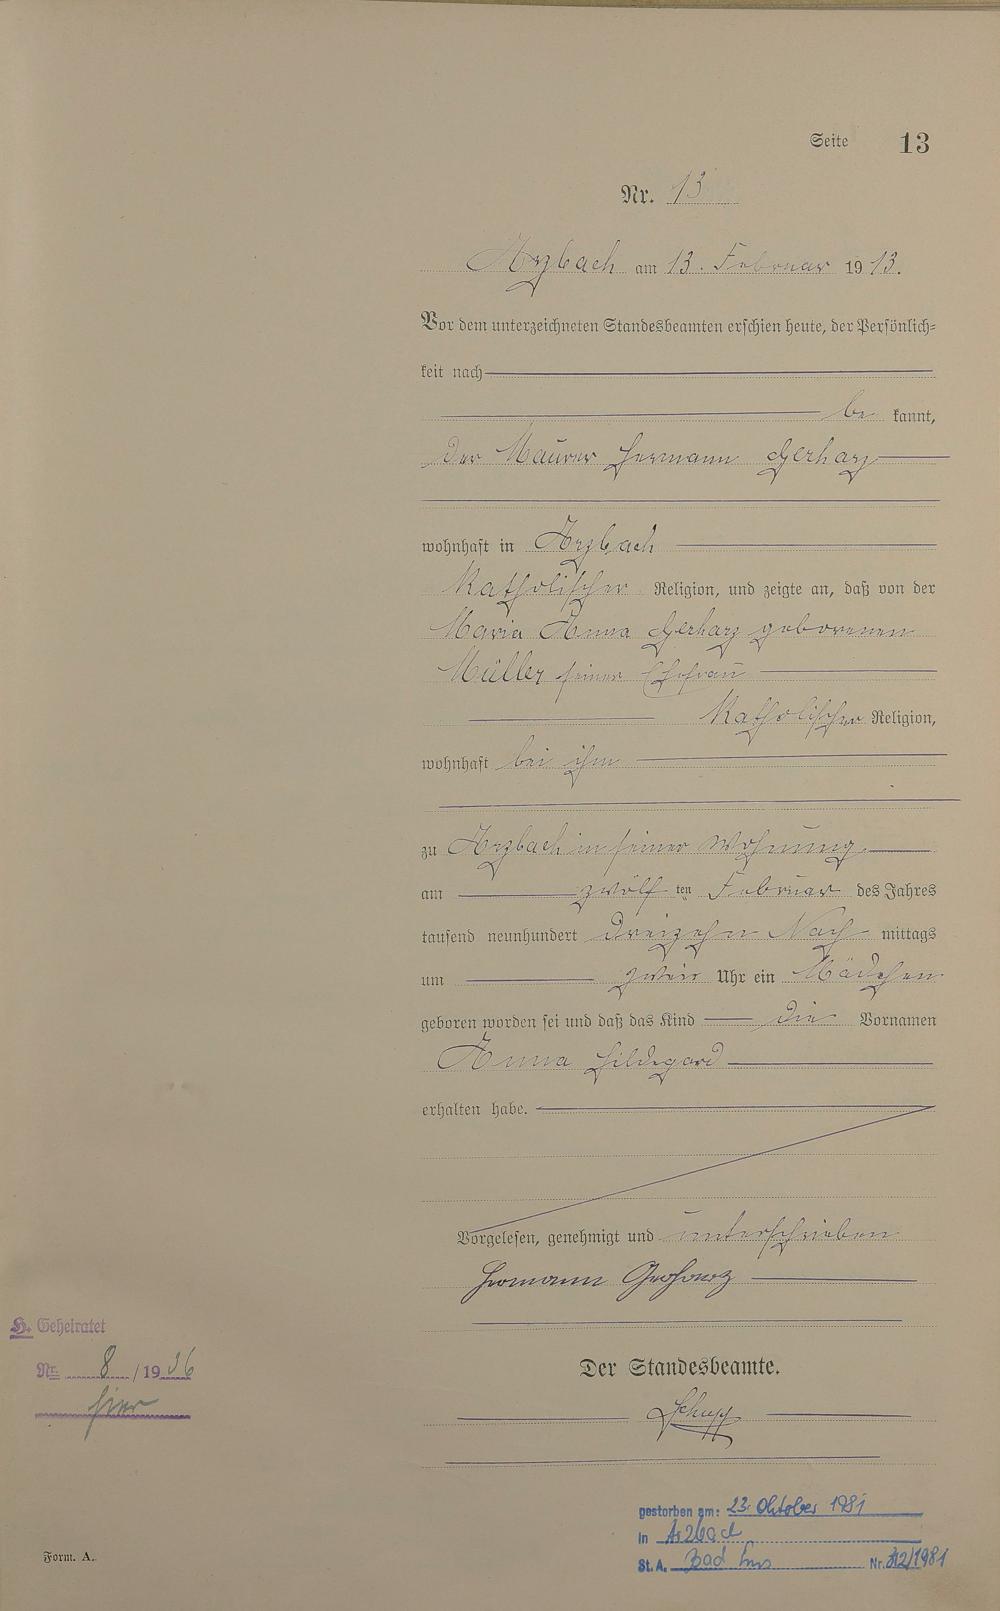 Seite 13
Nr. 13
Arzbach am 13. Februar 1913.
Vor dem unterzeichneten Standesbeamten erschien heute, der Persönlich=
keit nach
be kannt,
der Maurer Hermann Gerharz
wohnhaft in Arzbach
Katholischer Religion, und zeigte an, daß von der
Maria Anna Gerharz geborenen
Müller seiner Ehefrau
Katholischer Religion,
wohnhaft bei ihm
zu Arzbach in seiner Wohnung
am zwölf ten Februar des Jahres
tausend neunhundert dreizehn Nach mittags
um zwei Uhr ein Mädchen
geboren worden sei und daß das Kind die Vornamen
Anna Hildegard
erhalten habe.
Vorgelesen, genehmigt und unterschrieben
Hermann Gerharz
H. Geheiratet
Nr. 8 /1936
hier
Der Standesbeamte.
Schupp
gestorben am: 23. Oktober 1981
in Arzbach
St.A. Bad Ems Nr. /1981
Form. A.